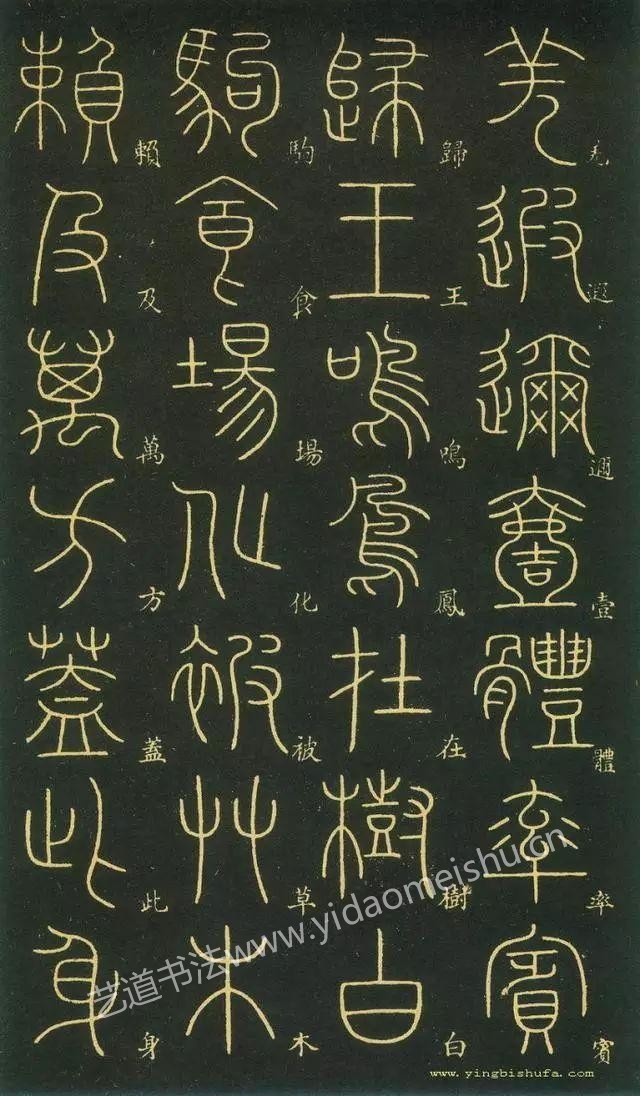 羌遐邇壹體率賓
歸王鳴鳳在樹白
駒食場化被草木
賴及萬方蓋此身
艺道书法www.yidaomeishu.cn
www.yingbishufa.com